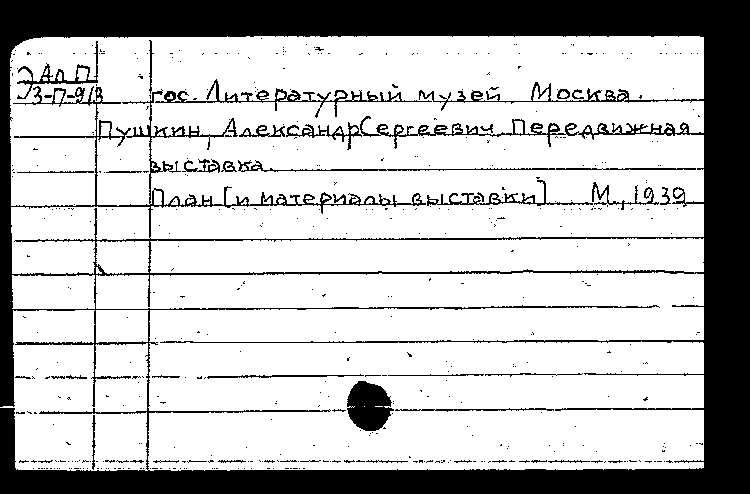 ЭАл П
З-П-913
гос. Литературный музей. Москва.
Пушкин, Александр Сергеевич. Передвижная
выставка.
План [и материалы выставки] М., 1939